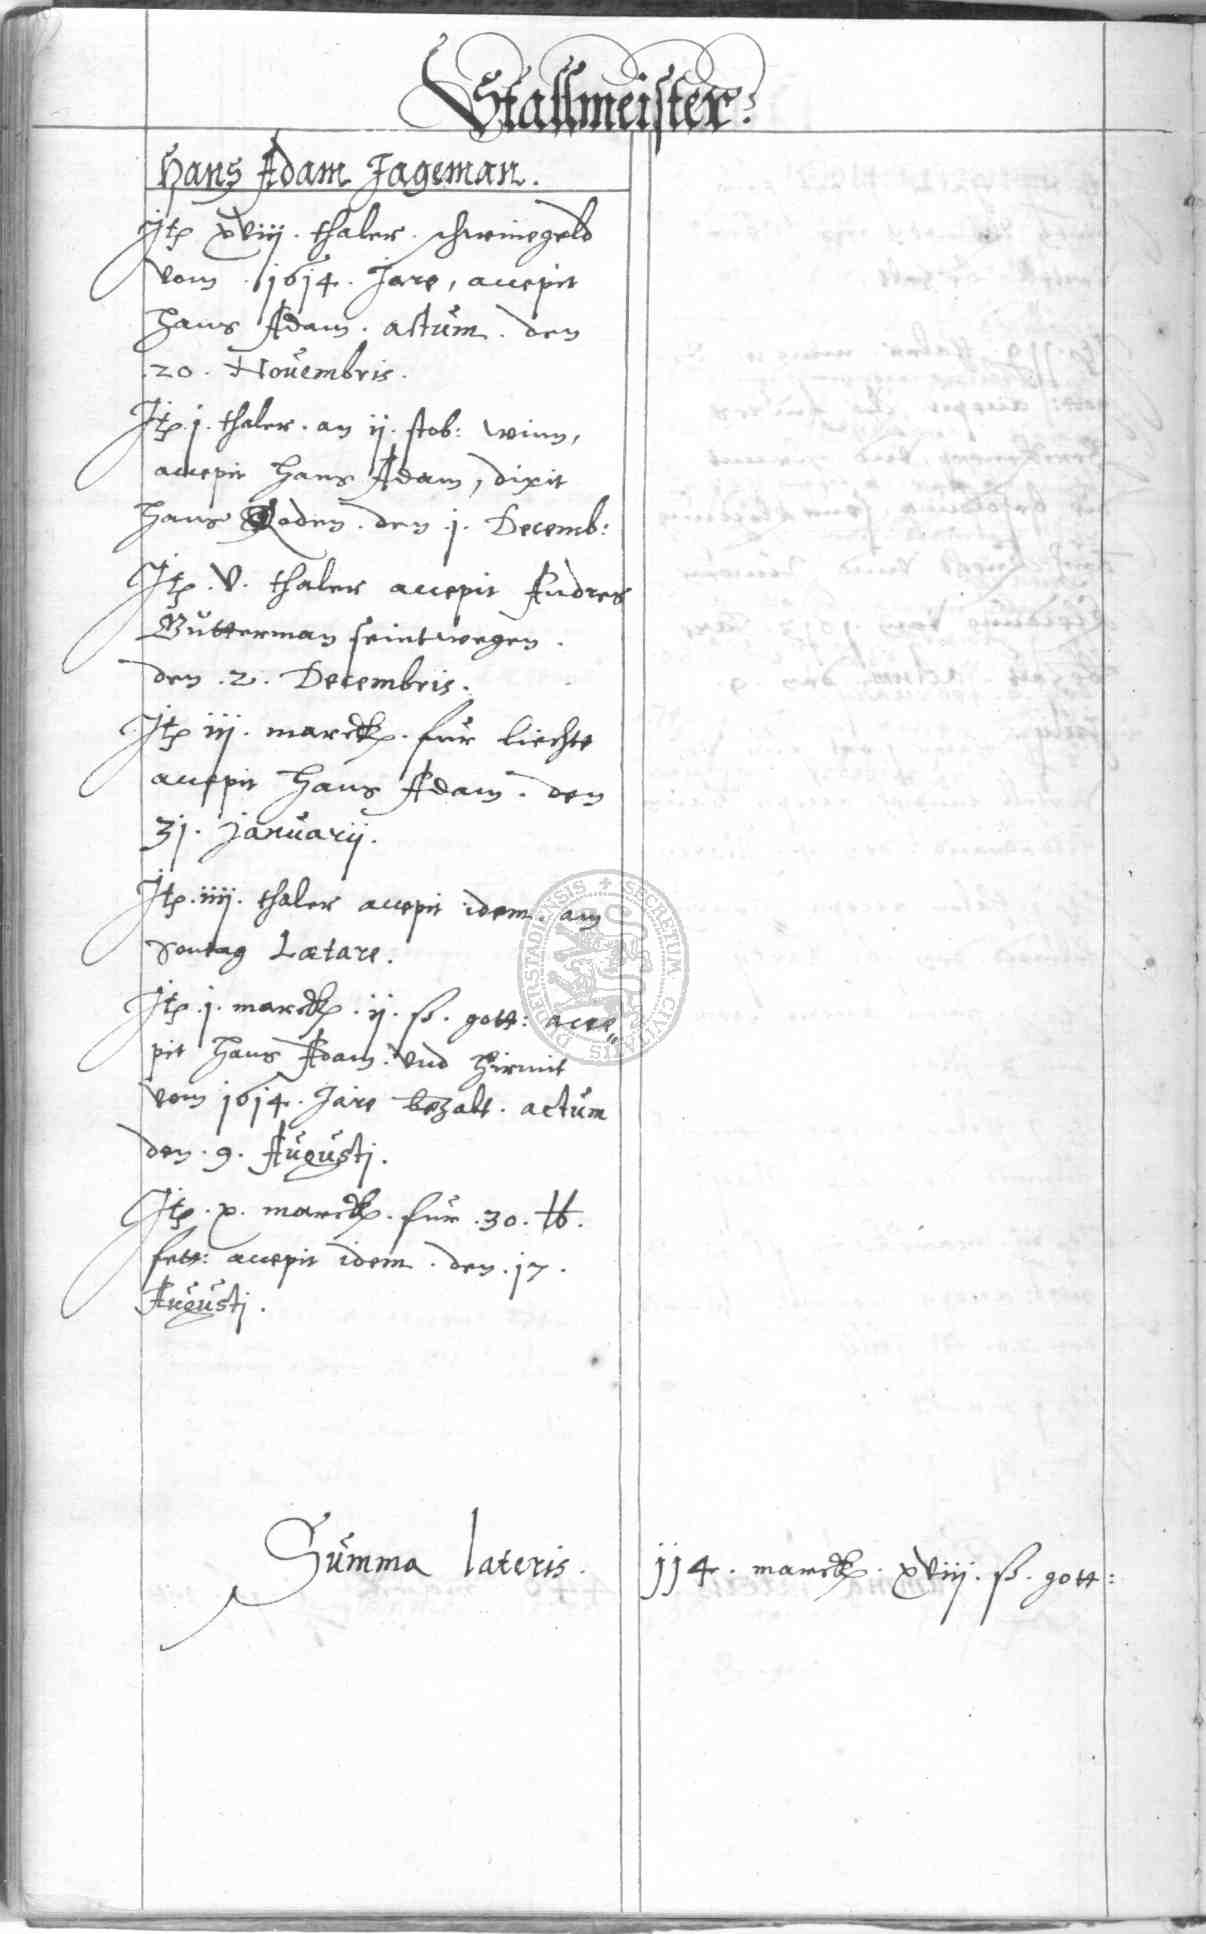 Stallmeister.
Hans Adam Jageman.
Jtp xviij. thaler. schweinegeld
vom .1614. Jare, accepit
Hans Adam. actum. den
.20. Novembris.
Jtp. j. thaler. an ij. stob: winn,
accepit Hans Adam, dixit
Hans Roden. den j. Decemb:
Jtp. v. thaler accepit Andres
Butterman seintwegen.
den .2. Decembris.
Jtp iij. marck. für liechte
accepit Hans Adam. den
31. Januarij.
Jtp. iiij. thaler accepit idem. am
Sontag Lætare.
Jtp. j. marck. ij. ß. gott: acce„
pit Hans Adam. vnd hirmit
vom 1614. Jare bezalt. actum
den. 9. Augustj.
Jtp. x. marck. für .30. ℔.
fett: accepit idem. den. 17.
Augustj.
Summa lateris. 114. marck. xviij. ß. gott:
SECRETUM CIVITATIS DUDERSTADIENSIS